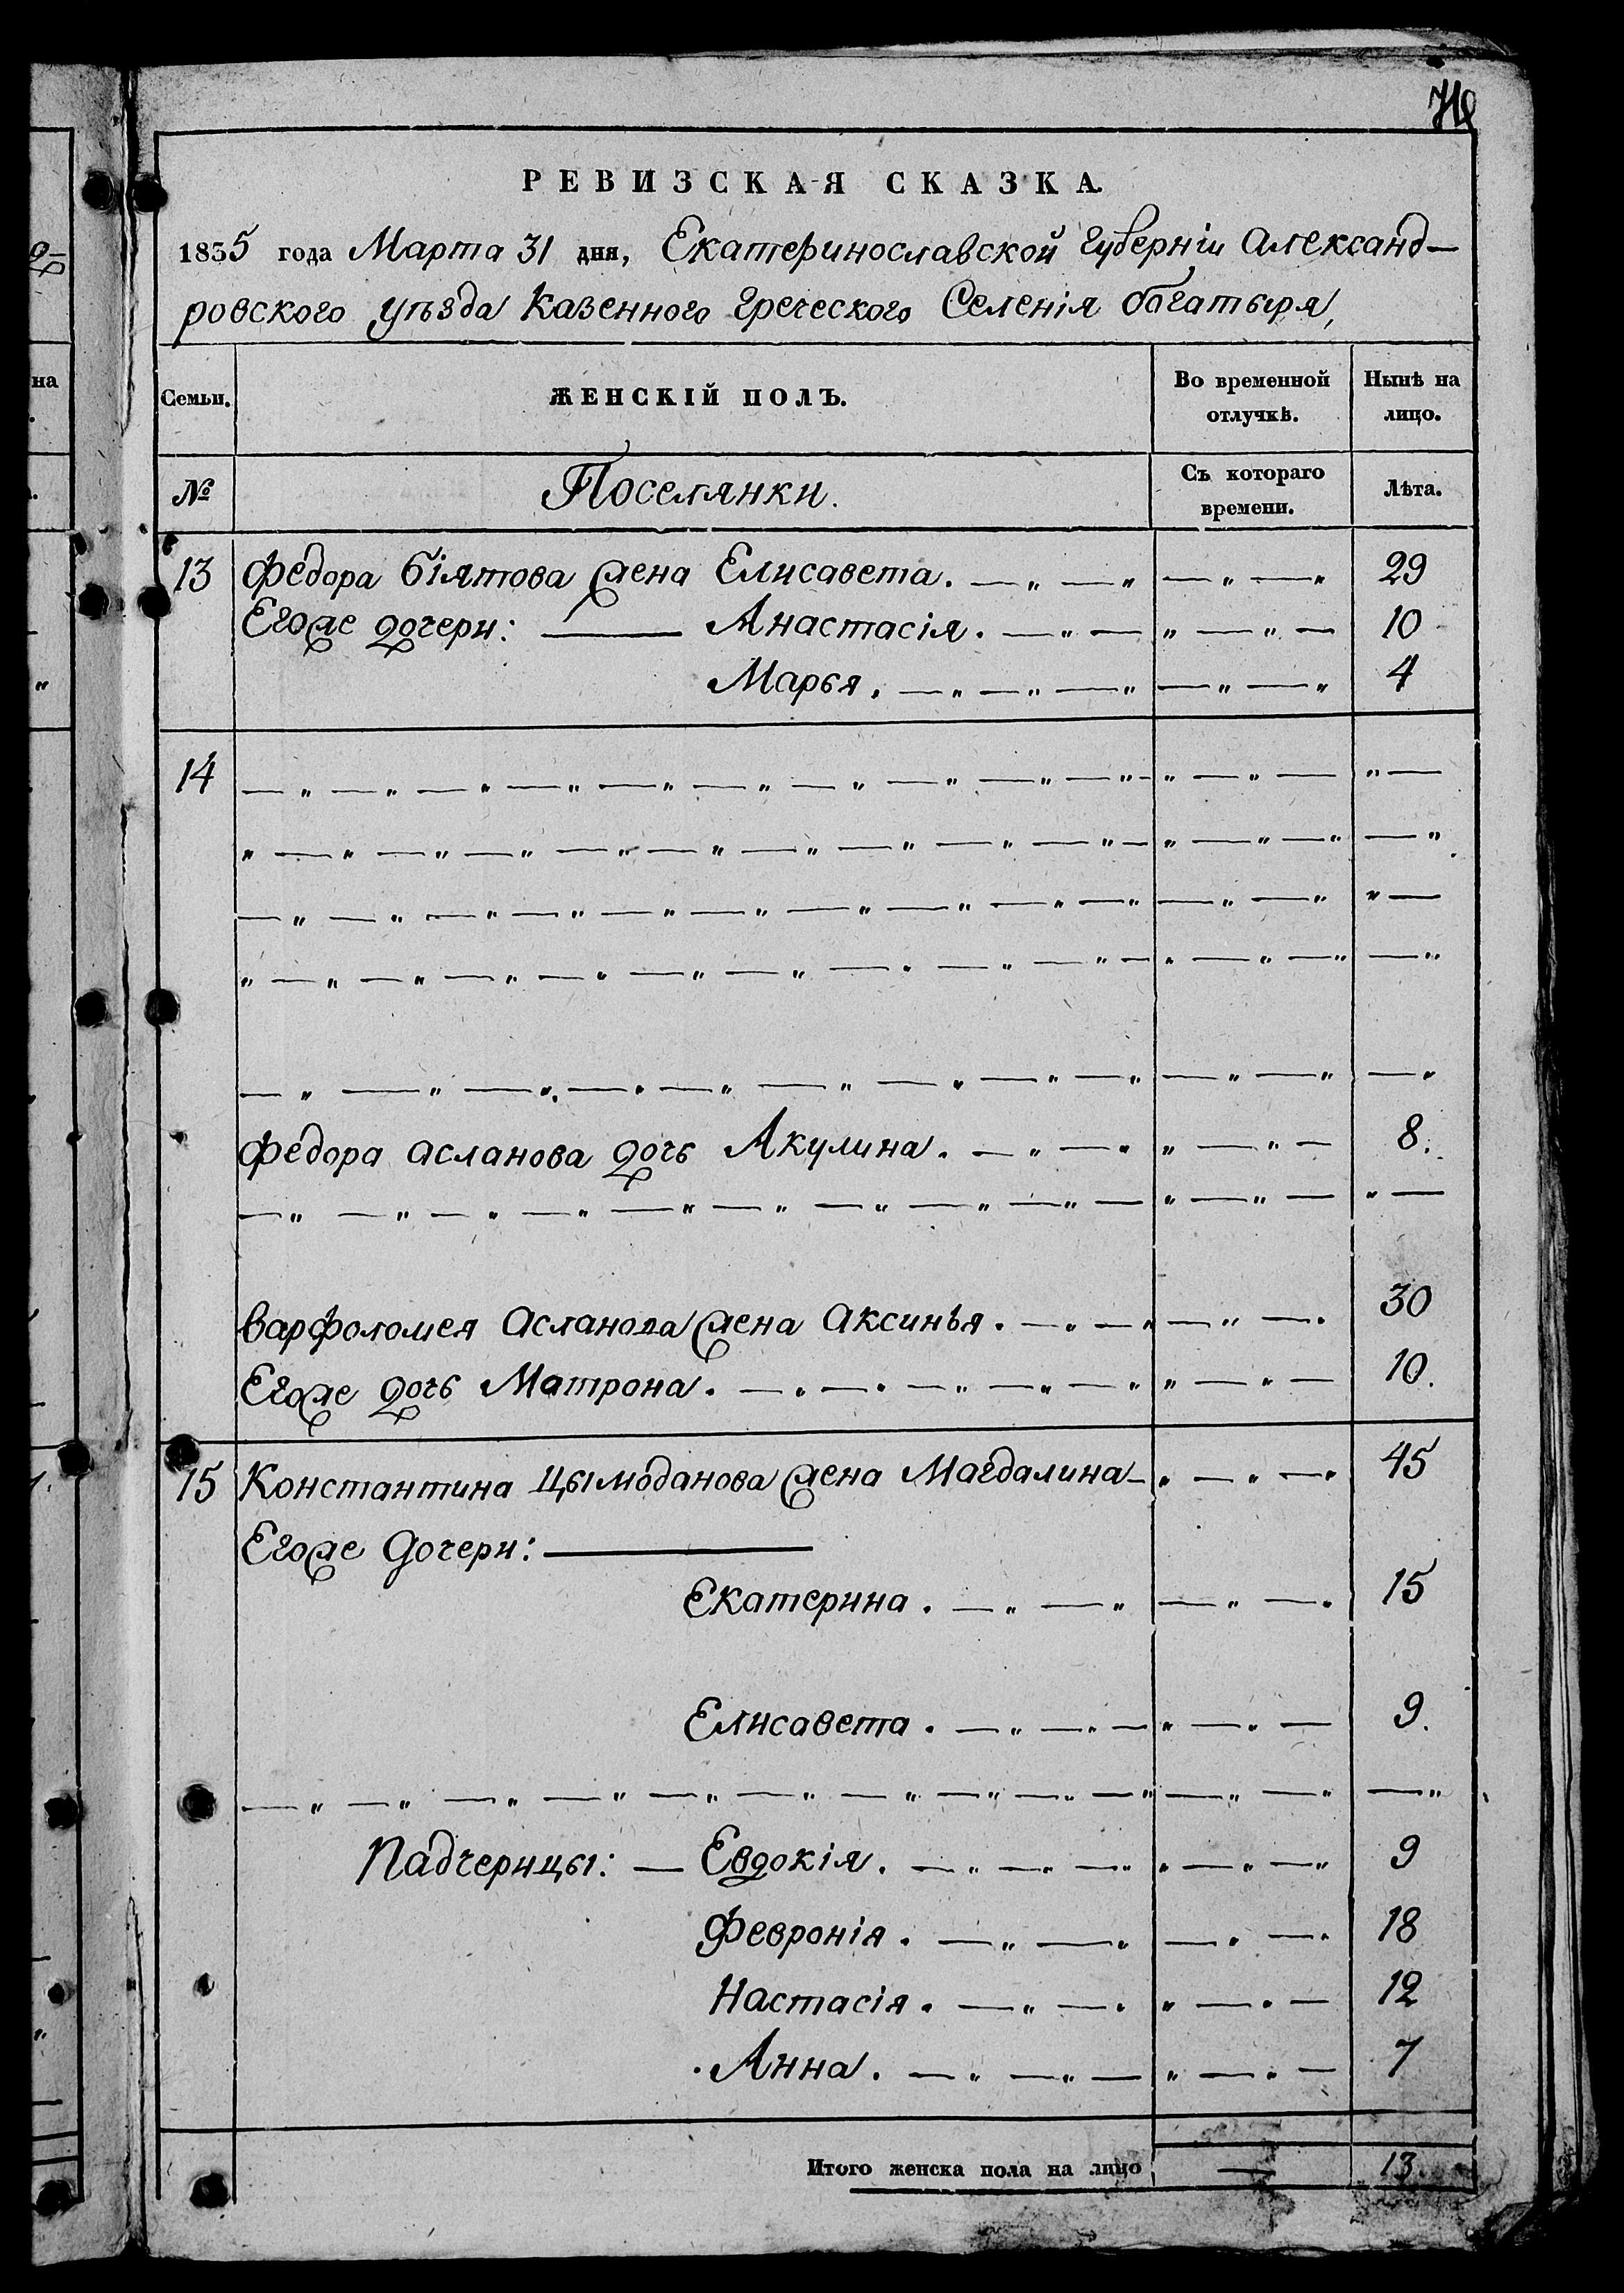 РЕВИЗСКАЯ СКАЗКА.
1835 года Марта 31 дня, Екатеринославской Губерніи Александ–
ровского уѣзда Казенного Греческого Селенія богатыря,
Семьи. ЖЕНСКІЙ ПОЛЪ. Во временной отлучкѣ. Нынѣ на лицо.
№ Поселянки. Съ котораго времени. Лѣта.
13 Федора Біятова жена Елисавета. — „ — „ — „ — „ 29
Егоже дочери: — Анастасія. — „ — „ — „ — 10
Марья. — „ — „ — „ — „ — „ 4
14 — „ — „ — „ — „ — „ — „ — „ — „ — „ — „ — „ — „ — „ —
„ — „ — „ — „ — „ — „ — „ — „ — „ — „ — „ — „ — „ — „
— „ — „ — „ — „ — „ — „ — „ — „ — „ — „ — „ — „ „ —
„ — „ — „ — „ — „ — „ — „ — „ — „ — „ — „ — „ — „
— „ — „ — „ — „ — „ — „ — „ — „ — „ — „ — „ — „
Федора Асланова дочь Акулина. — „ — „ „ — „ — 8.
— „ — „ — „ — „ — „ — „ — „ — „ — „ — „ — „ — „ —
Варфоломея Асланова жена Аксинья. — „ — „ — „ — „ 30
Егоже дочь Матрона. — „ — „ — „ — „ — „ „ — „ — 10.
15 Константина Цымоданова жена Магдалина — „ — „ — „ 45
Егоже Дочери: —
Екатерина. — „ — „ — „ — „ 15
Елисавета. — „ — „ — „ — „ — 9.
— „ — „ — „ — „ — „ — „ — „ — „ — „ — „ — „ — „ — „
Падчерицы: — Евдокія. — „ — „ — „ „ — „ — „ 9
Февронія. — „ — „ — „ — „ 18
Настасія. — „ — „ „ — „ — 12
Анна. — „ — „ — „ — „ — 7
Итого женска пола на лицо — 13.